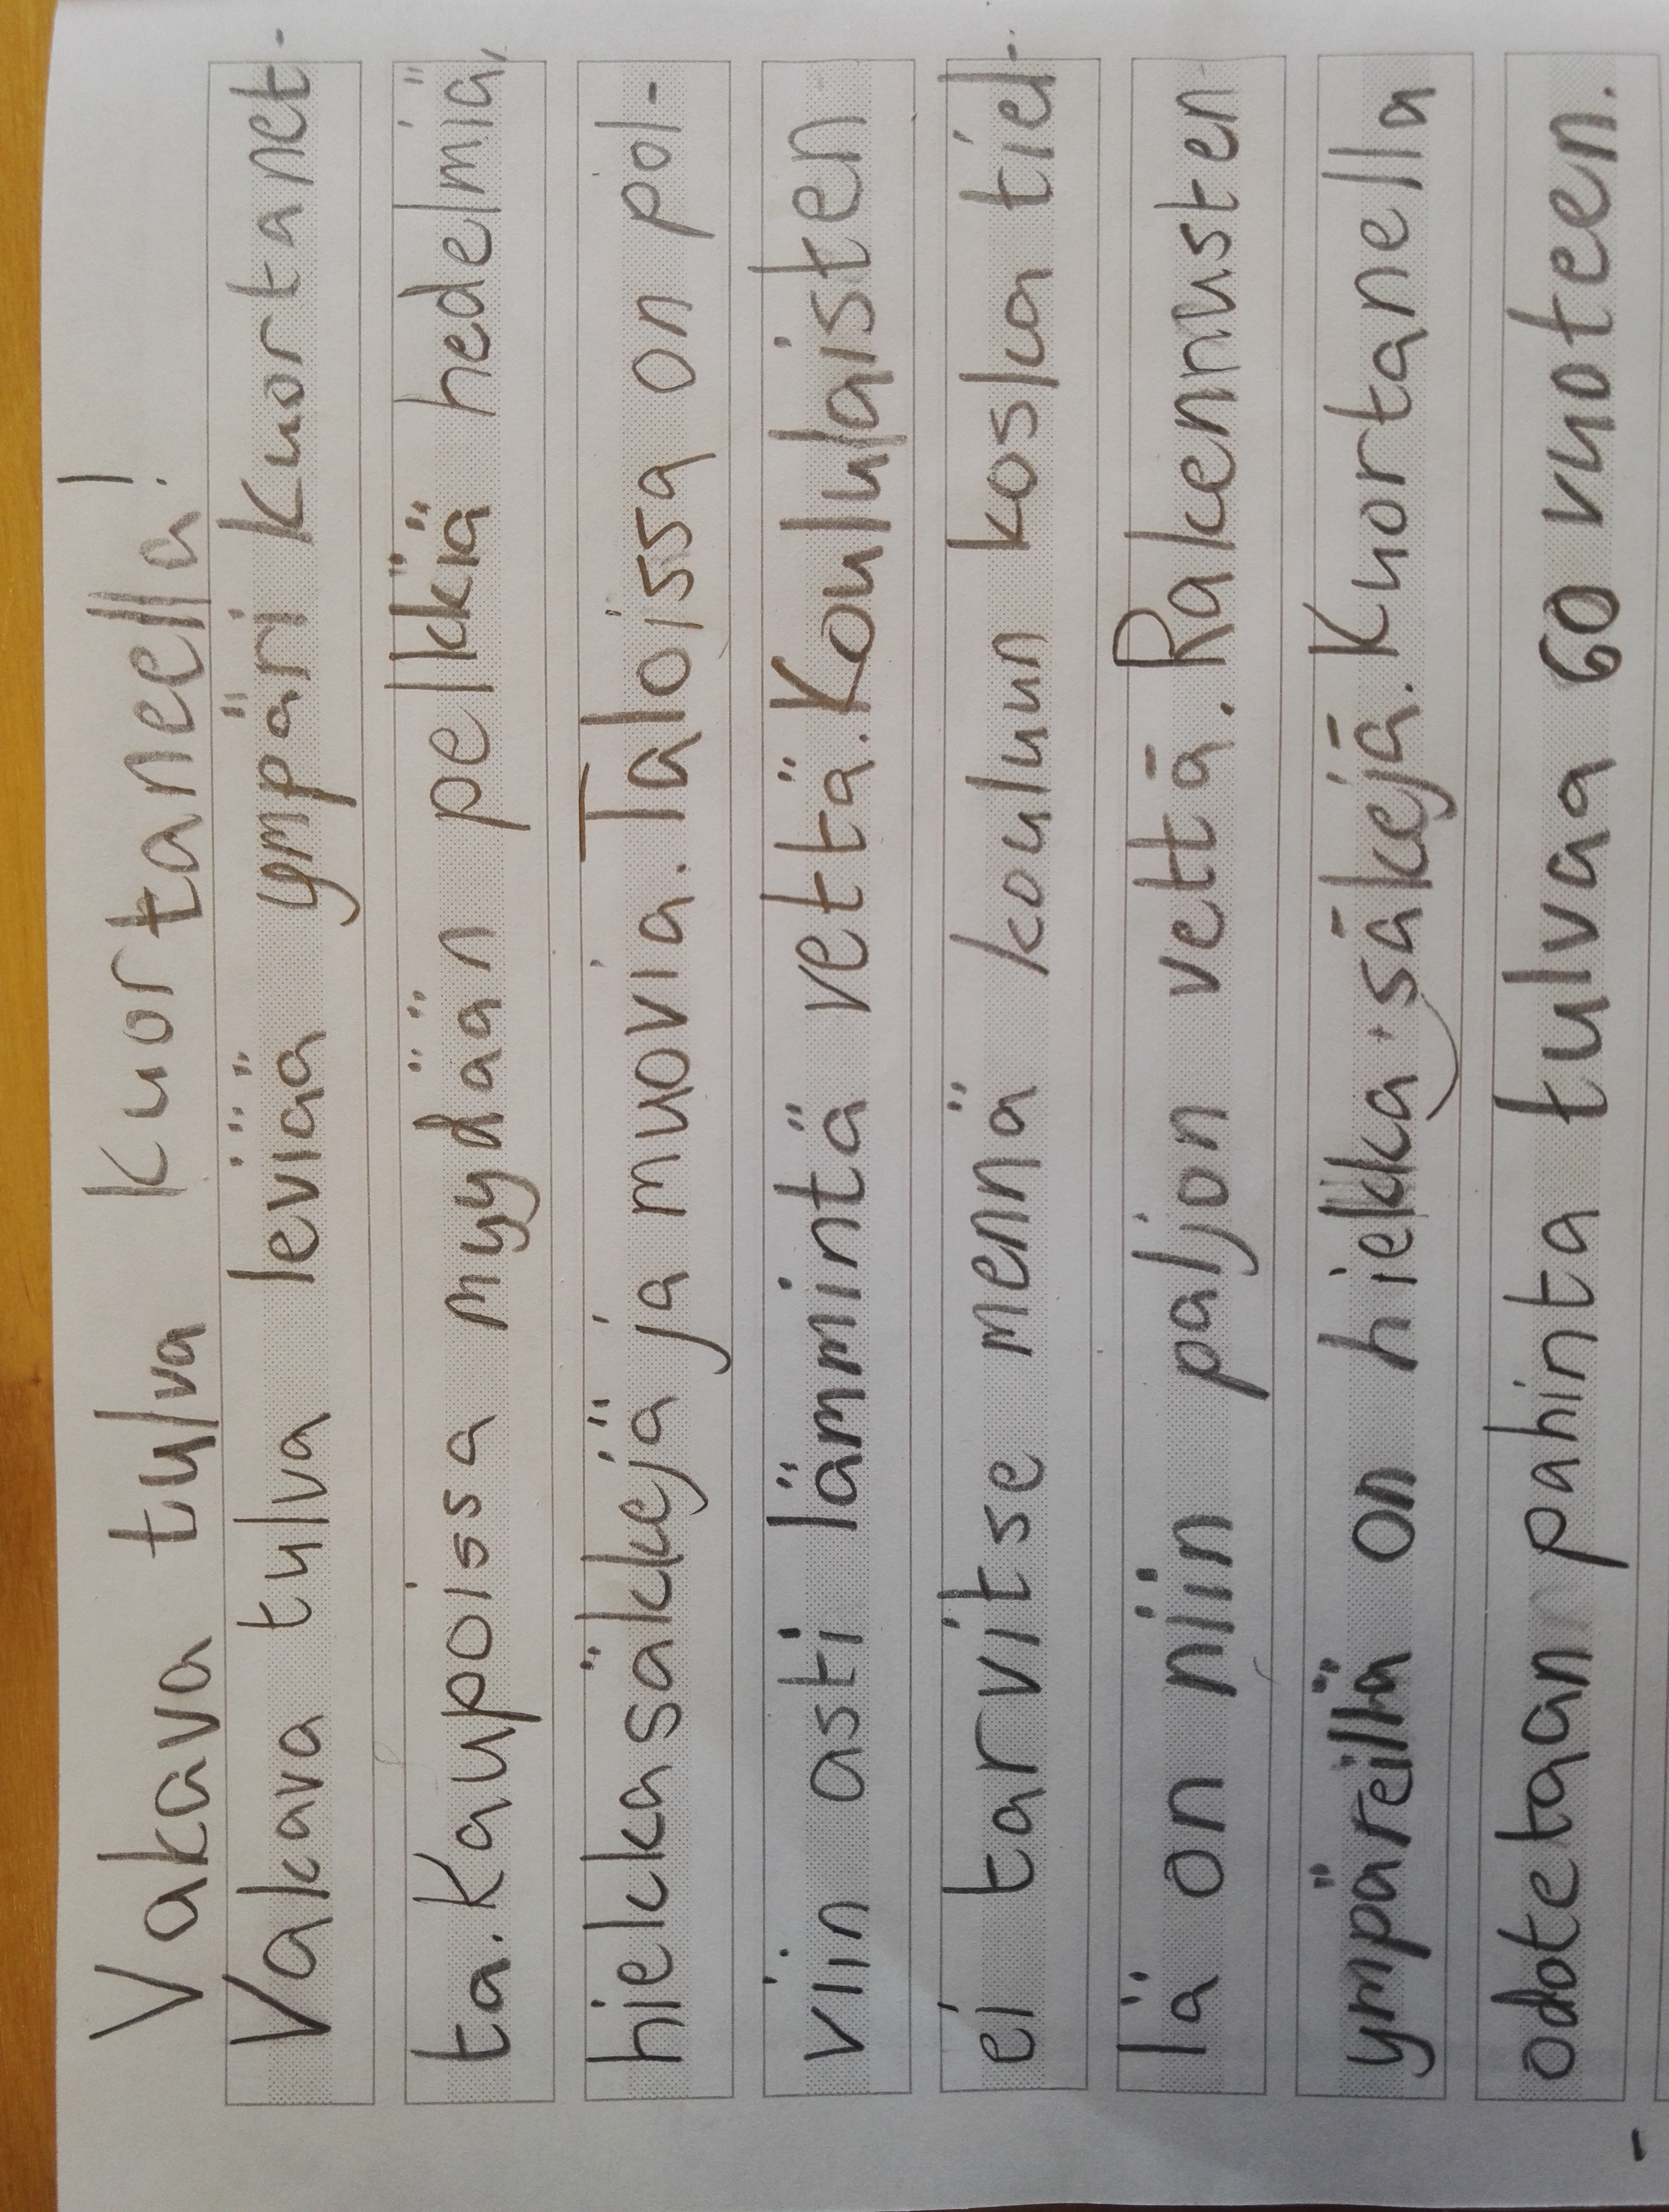 Vakava tulva Kuortaneella!
Vakava tulva leviää ympäri Kuortanet-
ta. Kaupoissa myydään pelkkiä hedelmiä,
hiekkasäkkejä ja muovia. Taloissa on pol-
viin asti lämmintä vettä. Koululaisten
ei tarvitse mennä kouluun koska tiel-
lä on niin paljon vettä. Rakennusten
ympäreillä on hiekka säkejä. Kuortanella
odotetaan pahinta tulvaa 60 vuoteen.